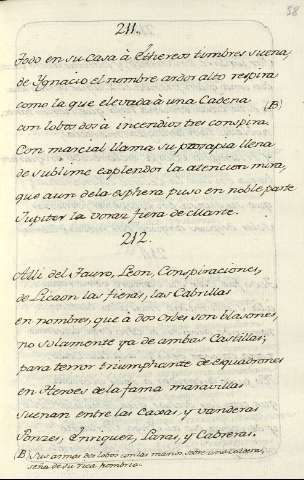 38
211.
Todo en su casa à Ethereos timbres suena,
de Ygnacio el nombre ardor alto respira
como la que elevada à una Cadena
con lobos dos à incendios tres conspira. (B)
Con marcial llama su prosapia llena
de sublime esplendor la atencion mira,
que aun dela esphera puso en noble parte
Jupiter la voraz fiera de Marte.
212.
Alli del Tauro, Leon, Conspiraciones,
de Licaon las fieras, las Cabrillas
en nombres, què à dos Orbes son blasones,
no solamente ya de ambas Castillas;
para terror triumphante de esquadrones
en Heroes de la fama maravillas
suenan entre las Caxas, y vanderas
Ponzes, Enriquez, Laras, y Cabreras.
(B) Sus armas dos lobos con las manos sobre una caldera,
seña de su rica hombria.